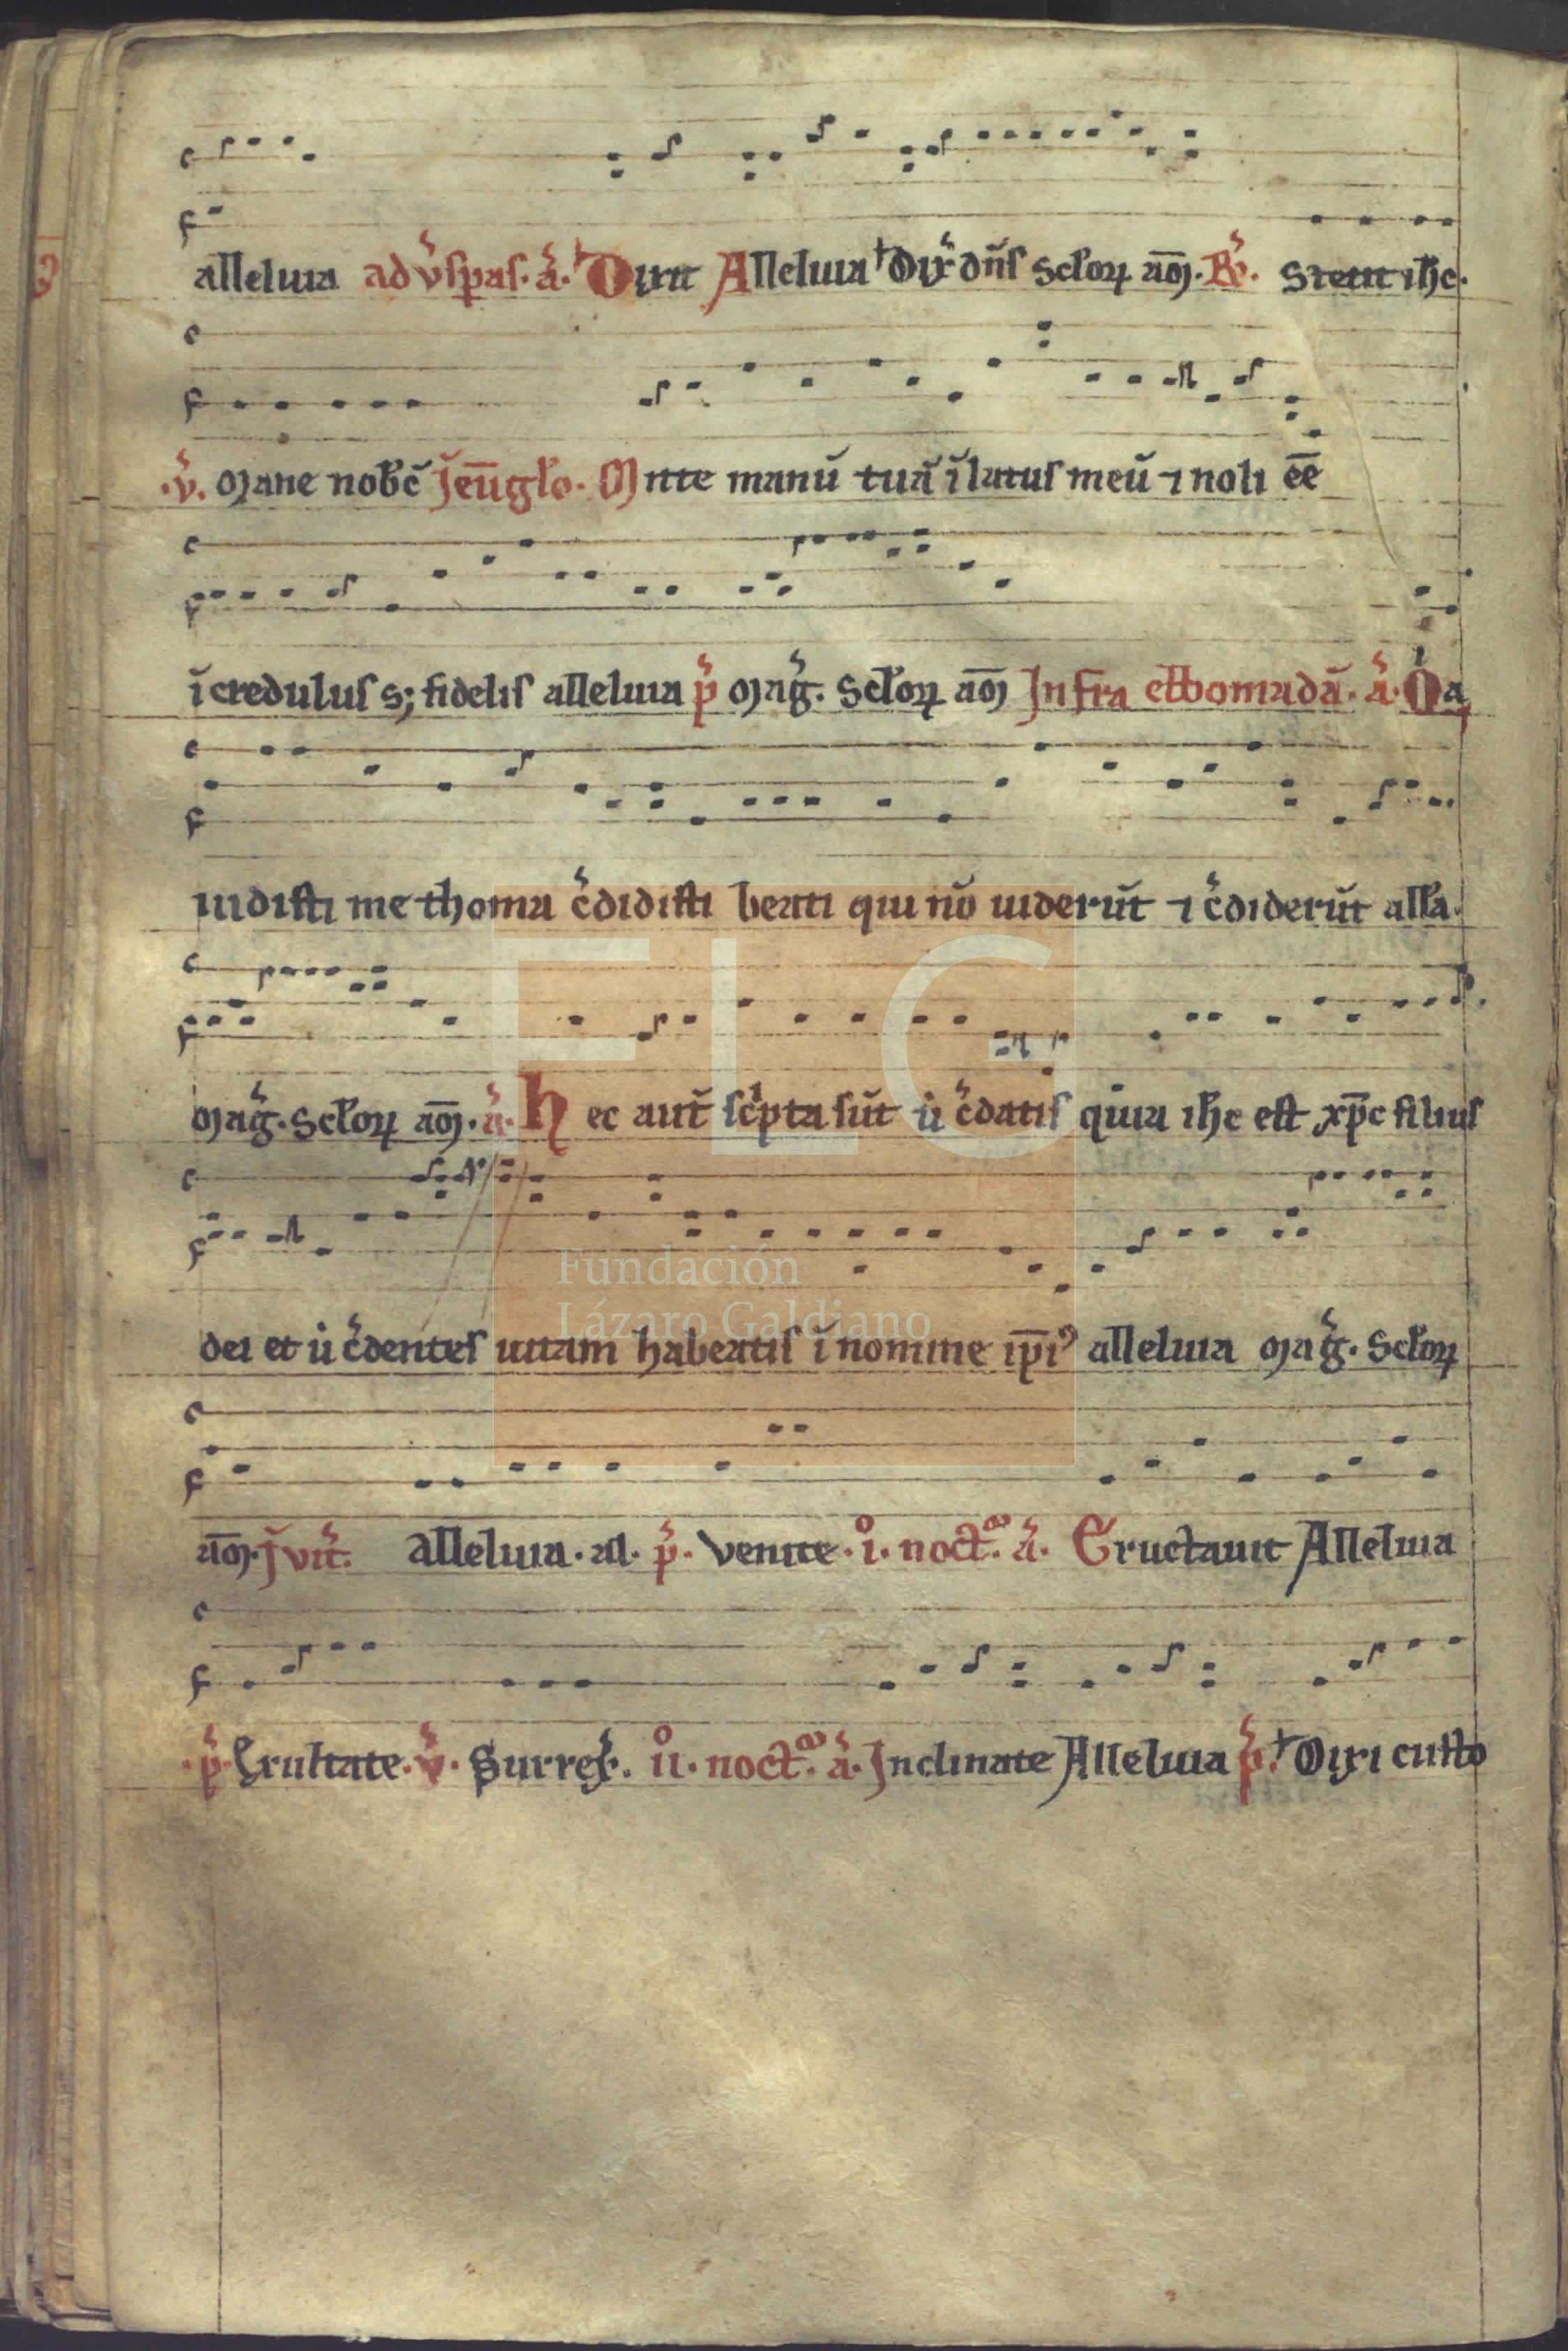 alleluia ad vs̄pas. a͛. Dixit Alleluia Dix̄ dn̄s Scl̄oꝝ am̄. R̄. Stetit ih̄c.
v̄. Mane nob̄c̄ J̄ eūgl̄o. Mitte manū tuā ī latus meū ⁊ noli ēē
īcredulus s; fidelis alleluia p͛ Mag̃. Scl̄oꝝ am̄ Infra ebdomadā. a͛. Q̇a
uidisti me thoma c͛didisti beati qui nō uiderūt ⁊ c͛diderūt all̄a.
Mag̃. Scl̄oꝝ am̄. a͛. hec aut̄ sc̍pta sūt u̇ c͛datis quia ih̄c est xp̄c filius
dei et u̇ c͛dentes uitam habeatis ī nomine ip̄iꝰ alleluia Mag̃. Scl̄oꝝ
am̄. J̄vit̄. Alleluia. all. p͛. Venite. i. noct̄. a͛. Eructauit Alleluia
p͛. Exultate. v̄. Surrex̄. ii. noct̄. a͛. Inclinate Alleluia p͛. Dixi custo
FLG
Fundación
Lázaro Galdiano